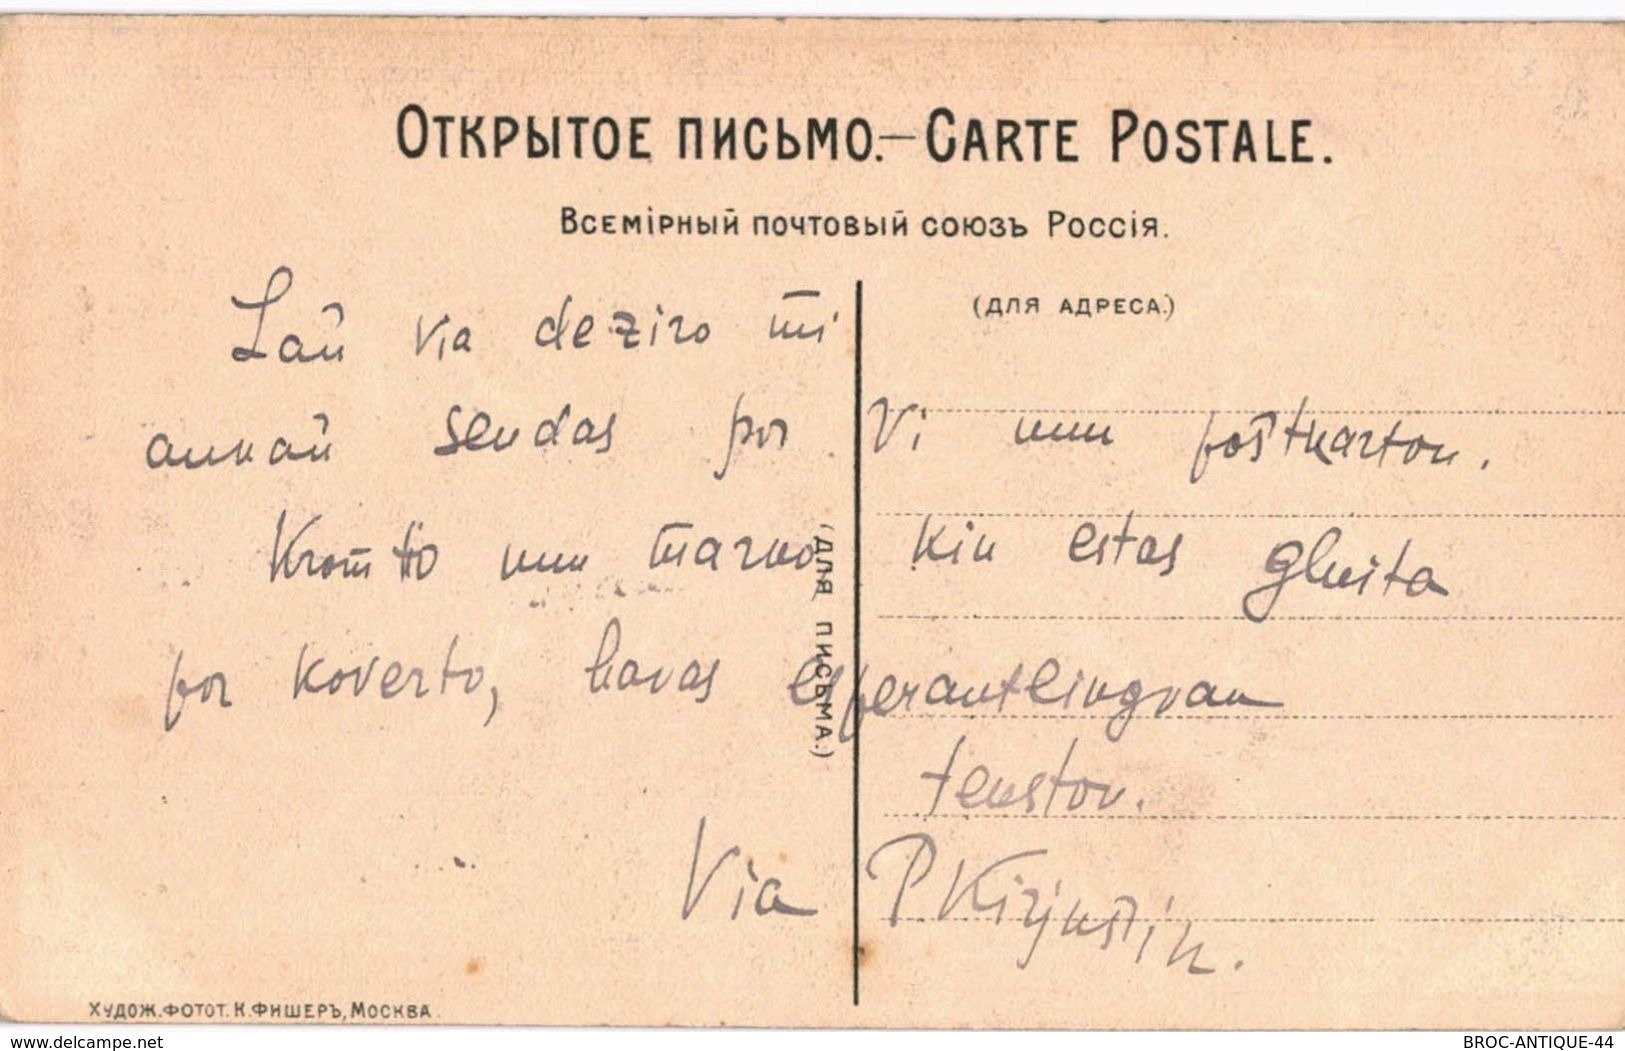 Открытое письмо.—Carte Postale.
Всемірный почтовый союзъ Россія.
(для адреса.)
Laŭ via deziro mi
ankaŭ sendas por Vi unu poŝtkarton.
Krom tio unu marko kiu estas gluita
por koverto, havas esperantlingvan
tekston.
Via P Kirjuŝin.
(для письма.)
Худож. фотот. К. Фишеръ, Москва.
delcampe.net
BROC-ANTIQUE-44